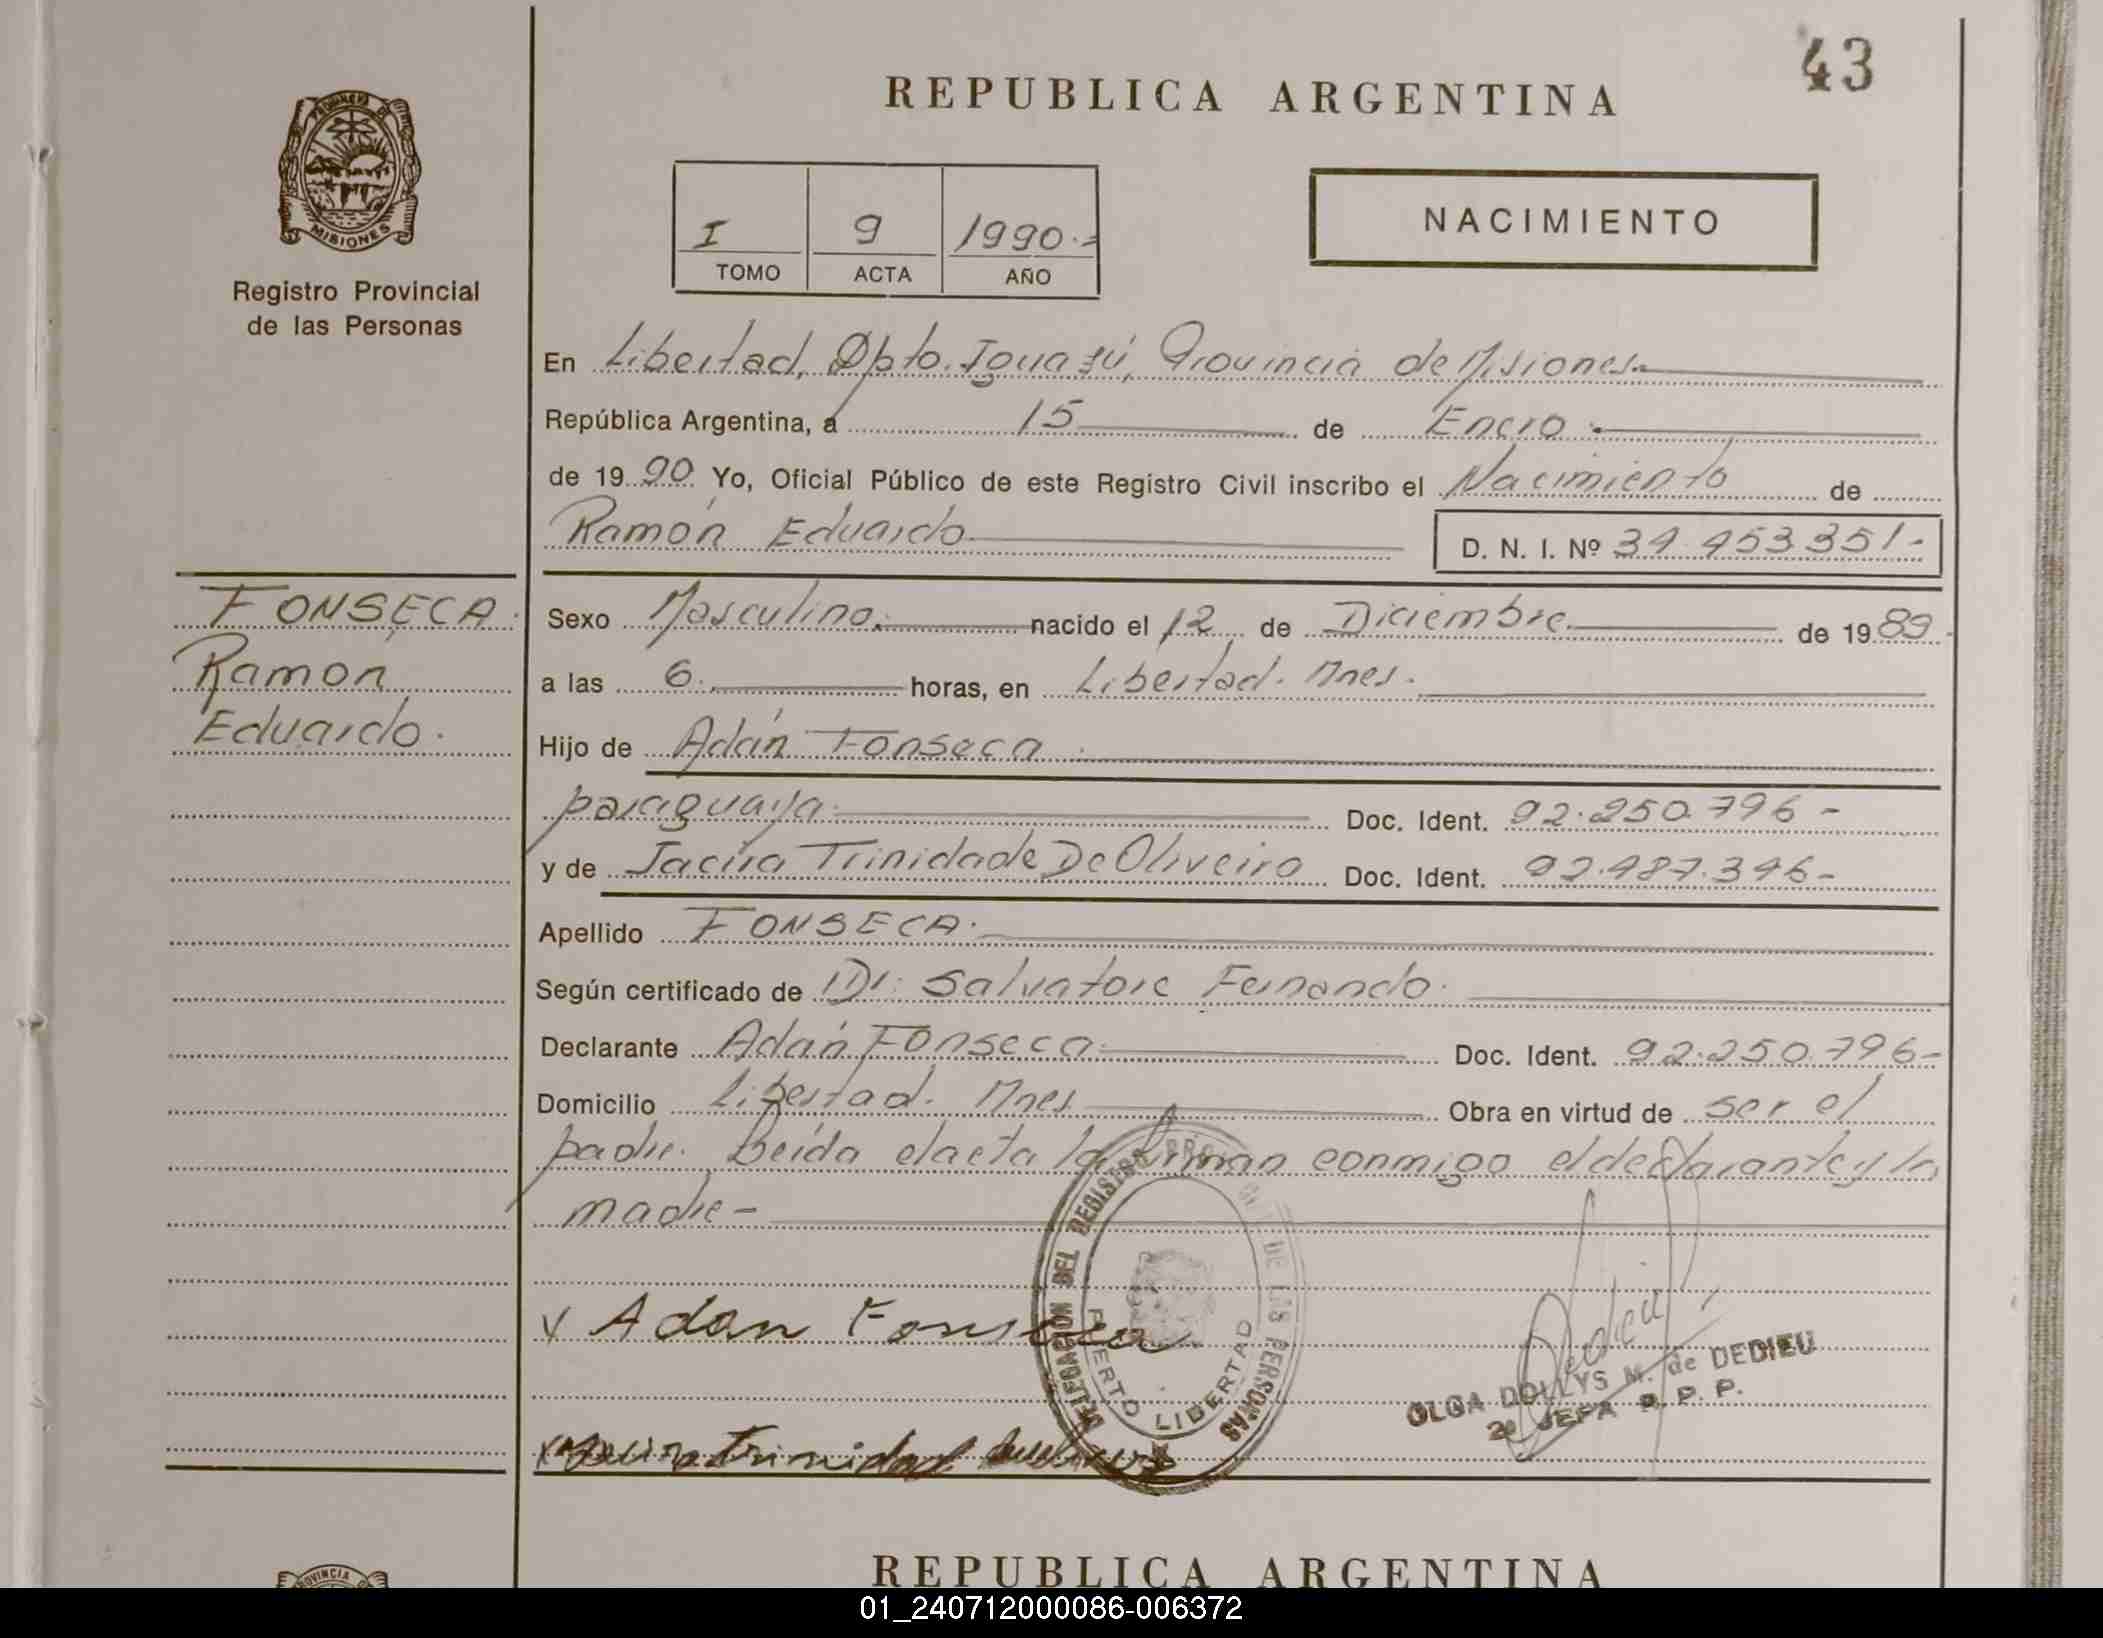 43
REPUBLICA ARGENTINA
PROVINCIA DE
MISIONES
Registro Provincial
de las Personas
I 9 1990.=
TOMO ACTA AÑO
NACIMIENTO
En Libertad, Dpto. Iguazú, Provincia de Misiones
República Argentina, a 15 de Enero.
de 1990 Yo, Oficial Público de este Registro Civil inscribo el Nacimiento de
Ramón Eduardo D. N. I. Nº 34.453.351-
FONSECA
Ramon
Eduardo.
Sexo Masculino. nacido el 12 de Diciembre de 1989.
a las 6. horas, en Libertad. Mnes.
Hijo de Adán Fonseca
paraguaya. Doc. Ident. 92.250.796-
y de Jacira Trinidade De Oliveira Doc. Ident. 92.487.346-
Apellido FONSECA.
Según certificado de Dr. Salvatore Fernando.
Declarante Adán Fonseca Doc. Ident. 92.250.796-
Domicilio Libertad. Mnes Obra en virtud de ser el
padre. Leída el acta la firman conmigo el declarante y la
madre-
x Adan Fonseca
DELEGACION DEL REGISTRO PROVINCIAL DE LAS PERSONAS
PUERTO LIBERTAD
Dedieu
OLGA DOLLYS M. de DEDIEU
2º JEFA R. P. P.
Trinidad
PROVINCIA
REPUBLICA ARGENTINA
01_240712000086-006372